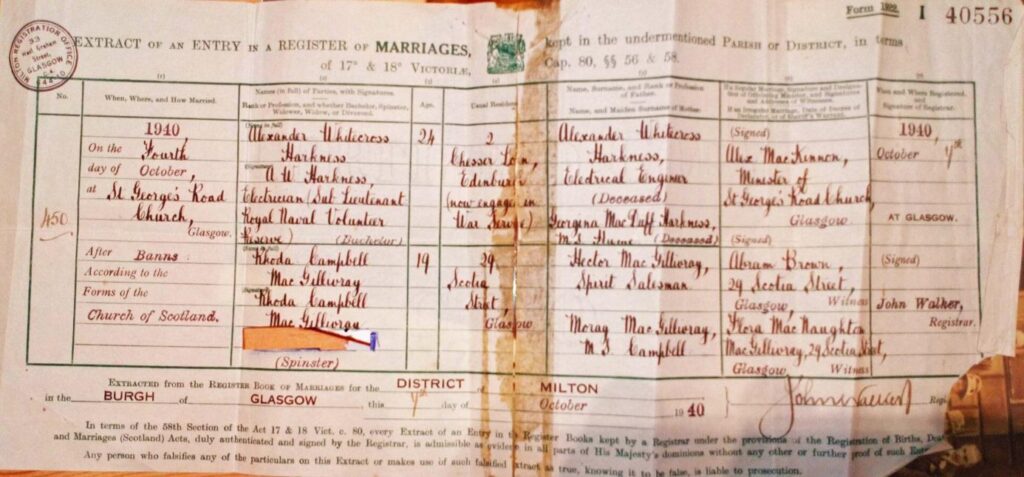 Form 1922. I 40556
MILTON REGISTRATION OFFICE
33
Street,
GLASGOW
EXTRACT OF AN ENTRY IN A REGISTER OF MARRIAGES, kept in the undermentioned PARISH OR DISTRICT, in terms
of 17° & 18° VICTORIÆ, Cap. 80, §§ 56 & 58.
No.
When, Where, and How Married.
Name (in full) of Parties, with Signatures.
Rank or Profession, and whether Bachelor, Spinster, Widower, Widow, or Divorced.
Age.
Usual Residence
Name, Surname, and Rank or Profession of Father.
Name, and Maiden Surname of Mother.
When and Where Registered, and Signature of Registrar.
450.
1940
On the Fourth
day of October,
at St George's Road
Church,
Glasgow.
After Banns
According to the
Forms of the
Church of Scotland.
(Sign in full)
Alexander Whitecross
Harkness
(Signature)
A. W. Harkness,
Electrician (Sub Lieutenant
Royal Naval Volunteer
Reserve) (Bachelor)
24
2
Chesser Loan,
Edinburgh
(now engaged in
War Service)
Alexander Whitecross
Harkness,
Electrical Engineer
(Deceased)
Georgina MacDuff Harkness,
M.S. Hume (Deceased)
(Signed)
Alex MacKinnon,
Minister of
St George's Road Church,
Glasgow.
1940,
October 7th
AT GLASGOW.
Rhoda Campbell
MacGillivray
(Signature)
Rhoda Campbell
MacGillivray
(Spinster)
19
29,
Scotia
Street,
Glasgow
Hector MacGillivray,
Spirit Salesman
Morag MacGillivray,
M.S. Campbell
(Signed)
Abram Brown,
29 Scotia Street,
Glasgow Witness
Flora MacNaughton
MacGillivray, 29 Scotia Street,
Glasgow Witness
(Signed)
John Walker,
Registrar.
EXTRACTED from the REGISTER BOOK OF MARRIAGES for the DISTRICT of MILTON
in the BURGH of GLASGOW, this 7th day of October 1940 John Walker Regi
In terms of the 58th Section of the Act 17 & 18 Vict. c. 80, every Extract of an Entry in the Register Books kept by a Registrar under the provisions of the Registration of Births, Dea
and Marriages (Scotland) Acts, duly authenticated and signed by the Registrar, is admissible as evidence in all parts of His Majesty's dominions without any other or further proof of such Ent
Any person who falsifies any of the particulars on this Extract or makes use of such falsified Extract as true, knowing it to be false, is liable to prosecution.